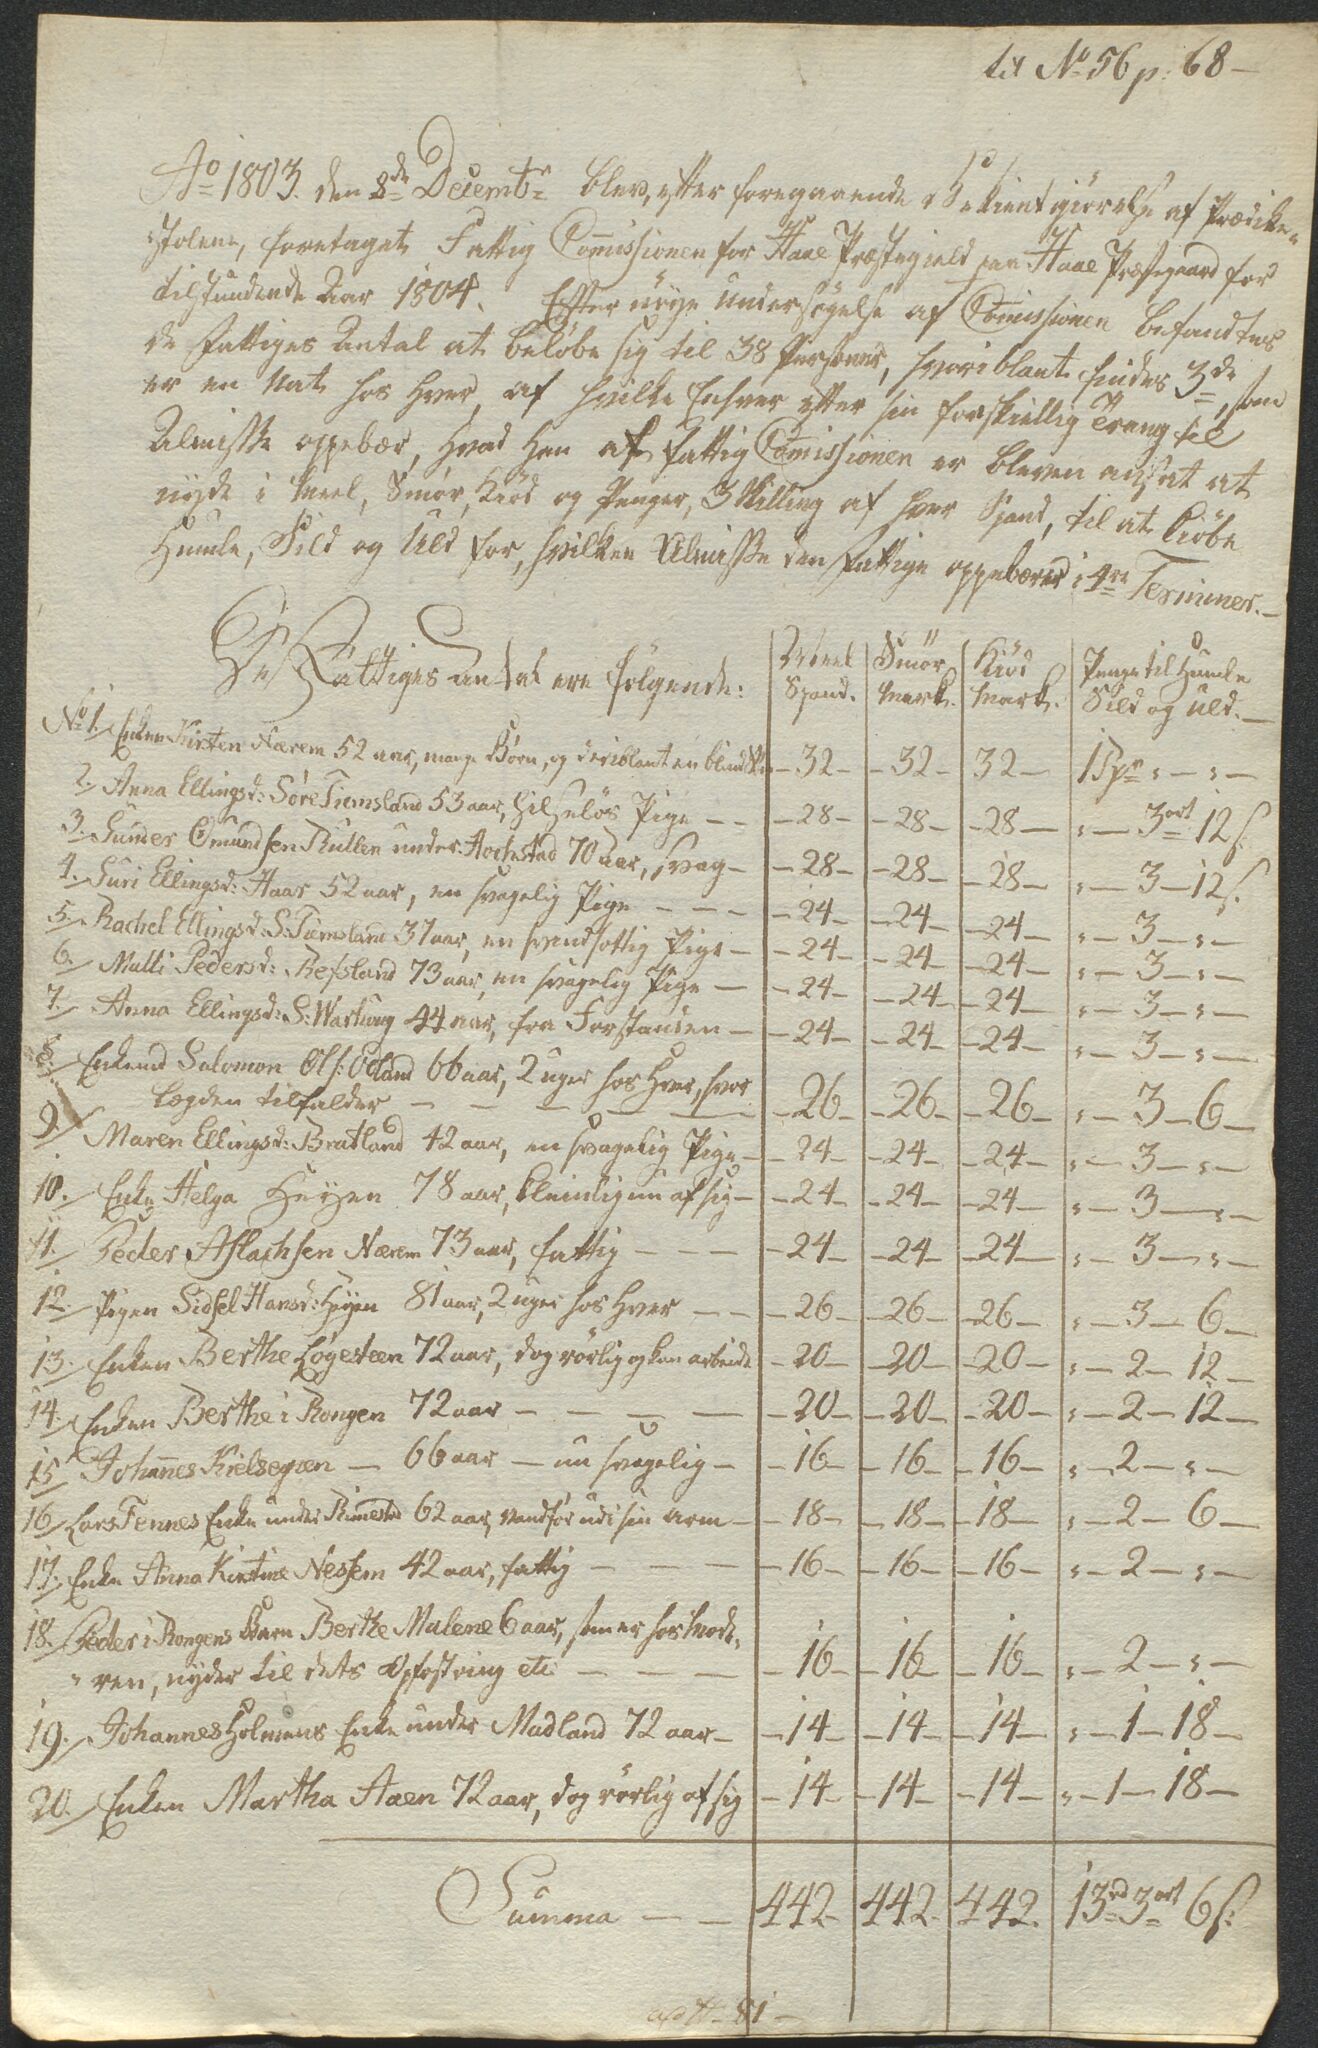 til No 56 p: 68 –
Ao 1803. den 8de Decembr blev, efter foregaaende Bekientgiørelse af Prædike-
stolene, foretaget Fattig Commissionen for Haae Præstegield paa Haae Præstegaard for
tilstundende Aar 1804. Efter nøye Undersøgelse af Commissionen befandtes
de Fattiges Antal at beløbe sig til 38 Personer, hvoriblant findes 3de, som
er en Nat hos hver, af hvilke Enhver efter sin forskiellig Trang til
Almisse oppebær, hvad han af Fattig Commissionen er bleven ansat at
nyde i Meel, Smør, Kiød og Penger, 3 Skilling af hver Spand, til at kiøbe
Humle, Sild og Uld for, hvilken Almisse den Fattige oppebærer i 4re Terminer. –
De Fattiges Antal ere følgende: Meel Spand. Smør Mark. Kiød Mark. Penge til Humle Sild og Uld. –
No 1. Enken Kirsten Nærem 52 aar, mange Børn, og deriblant en blind – 32 – – 32 – 32 – 1 Spd " – " –
2. Anna Ellingsd: Søre Tiemsland 53 aar, hilseløs Pige – – – 28 – – 28 – – 28 – " – 3ort 12 s.
3. Gunder Omundsen under 70 aar, svag – – 28 – – 28 – – 28 – " – 3 – 12 s.
4. Guri Ellingsd: Haar 52 aar, en svagelig Pige – – – – 24 – – 24 – – 24 – " – 3 – " –
5. Rachel Ellingsd: S: Tiemsland 37 aar, en Pige – – 24 – – 24 – – 24 – " – 3 – " –
6. Malli Pedersd: Refsland 73 aar, en svagelig Pige – – 24 – – 24 – – 24 – " – 3 – " –
7. Anna Ellingsd: S: Warhug 44 aar, fra Forstanden – – 24 – – 24 – – 24 – " – 3 – " –
8. Enkemd Salomon Ols: Odland 66 aar, 2 uger hos hver, hvor
Lægden tilfalder – – – – – – 26 – – 26 – – 26 – " – 3 – 6 –
9. Maren Ellingsd: Bratland 42 aar, en svagelig Pige – – 24 – – 24 – – 24 – " – 3 – " –
10. Enke Helga Høyen 78 aar, af sig – – 24 – – 24 – – 24 – " – 3 – " –
11. Peder Aslachsen Nærem 73 aar, fattig – – – – 24 – – 24 – – 24 – " – 3 – " –
12. Pigen Sidsel Hansd: Høyen 81 aar, 2 uger hos hver – – – 26 – – 26 – – 26 – " – 3 – 6 –
13. Enken Berthe Løgesteen 72 aar, dog rørlig og kan arbeide – 20 – – 20 – – 20 – " – 2 – 12 –
14. Enken Berthe i Rongen 72 aar – – – – – 20 – – 20 – – 20 – " – 2 – 12 –
15. Johannes – 66 aar – nu svagelig – – 16 – – 16 – – 16 – " – 2 – " –
16. Lars Tennes Enke under Rimestad 62 aar, vandfør udi sin Arm – – 18 – – 18 – – 18 – " – 2 – 6 –
17. Enke Anna Kirstine Nessem 42 aar, fattig – – – – 16 – – 16 – – 16 – " – 2 – " –
18. Peder i Rongens Barn Berthe Malene 6 aar, som er hos Mode-
ren, nyder til dets Opfostring etc – – – – 16 – – 16 – – 16 – " – 2 – " –
19. Johannes Holmens Enke under Madland 72 aar – – 14 – – 14 – – 14 – " – 1 – 18 –
20. Enken Martha Aaen 72 aar, dog rørlig af sig – 14 – – 14 – – 14 – " – 1 – 18 –
Summa – – 442. 442. 442. 13rd 3ort 6 s:
81 –